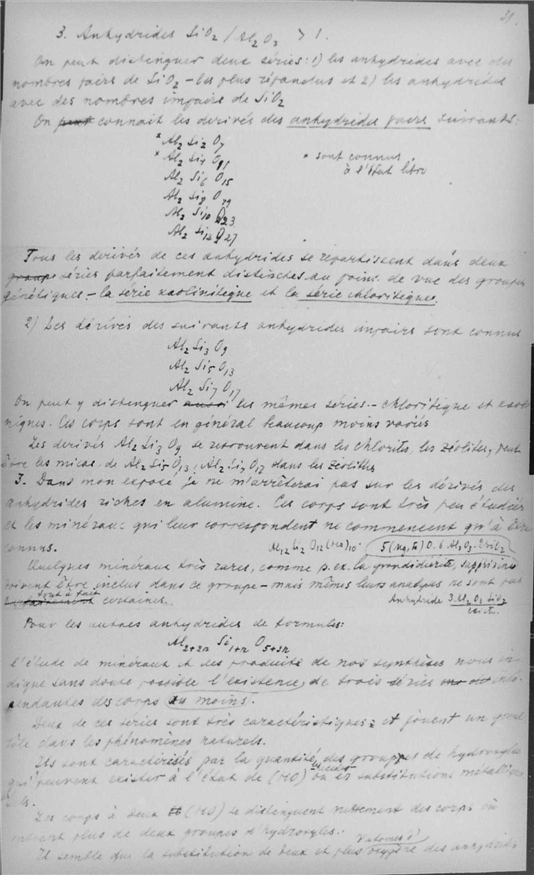 31.
3. Anhydrides SiO2/Al2O3 > 1.
On peut distinguer deux séries: 1) les anhydrides avec des
nombres pairs de SiO2 – les plus répandus et 2) les anhydrides
avec des nombres impairs de SiO2
On peut connait les derivés des anhydrides pairs suivants:
* Al2 Si2 O7
* Al2 Si4 O11
* sont connus
à l'état libre
Al2 Si6 O15
Al2 Si10 O23
Al2 Si12 O27
Tous les derivés de ces anhydrides se repartissent dans deux
groupes séries parfaitement distinctes au point de vue des groupes
génétiques – la série kaolinitique et la série chloritique.
2) Les dérivés des suivants anhydrides impairs sont connus
Al2 Si3 O9
Al2 Si5 O13
Al2 Si7 O17
On peut y distinguer aussi les mêmes séries – chloritique et
Ces corps sont en général beaucoup moins variés
Les derivés Al2Si3O9 se retrouvent dans les chlorites, les zéolites, peut
être les micas, de Al2Si5O13, Al2Si7O17 dans les zéolites
3. Dans mon exposé je ne m'arrêterai pas sur les dérivés des
anhydrides riches en alumine. Ces corps sont très peu étudiés
et les minéraux qui leur correspondent ne commencent qu'à être
connus.
Quelques minéraux très rares, comme p. ex. la grandidierite,
doivent être inclus dans ce groupe – mais mêmes leurs analyses ne sont pas
tout à fait certaines.
Anhydride 3 Al2O3 SiO2
Pour les autres anhydrides de formules:
Al2+2n Si1+n O5+5n
l'étude de minéraux et des produits de nos synthèses nous in-
dique sans doute possible l'existence de trois séries indé-
pendantes des corps au moins.
Deux de ces séries sont très caractéristiques et jouent un grand
rôle dans les phénomènes naturels.
Ils sont caractérisés par la quantité des groupes de hydroxyles
qui peuvent exister à l'état de (HO) ou et substitutions métalliques
Les corps à deux (HO) se distinguent nettement des corps où
entrent plus de deux groupes d'hydroxyles.
Il semble que la substitution de deux et plus atomes d'oxygène des anhydrides